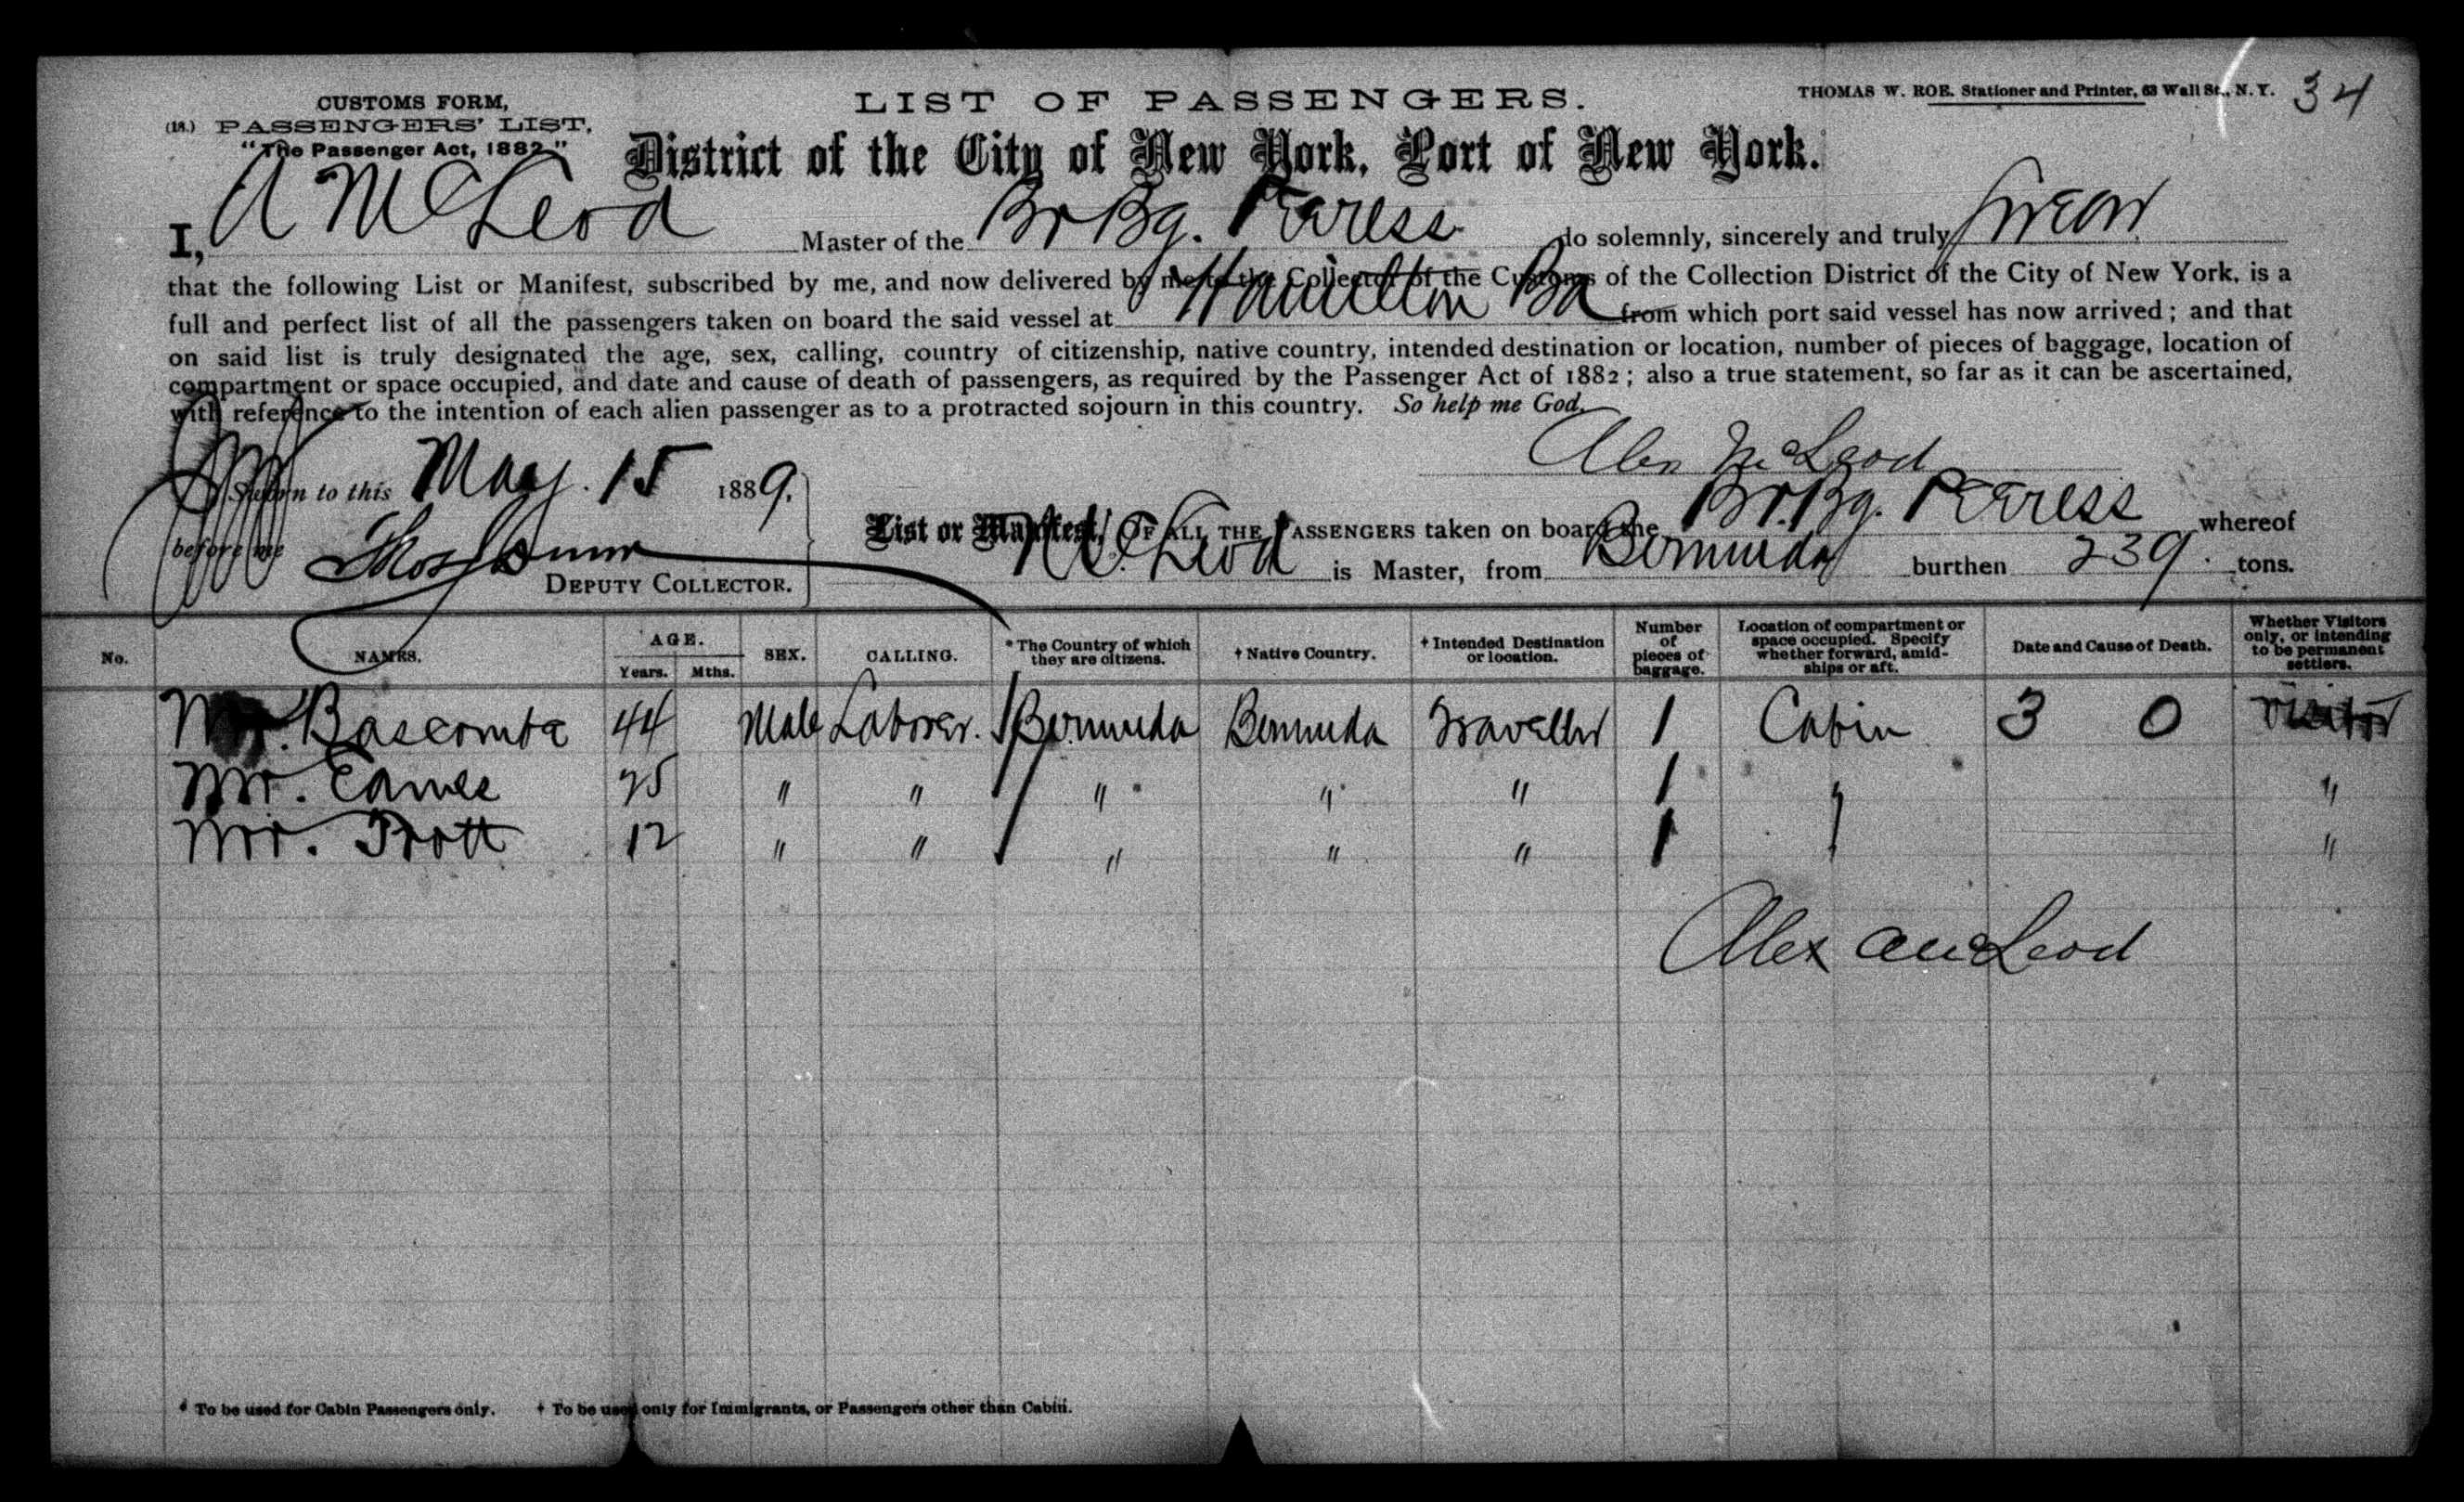 CUSTOMS FORM,
(18.) PASSENGERS' LIST,
"The Passenger Act, 1882."
LIST OF PASSENGERS.
THOMAS W. ROE. Stationer and Printer, 63 Wall St., N. Y. 34
District of the City of New York, Port of New York.
I, A McLeod Master of the Br Bg. Pearless do solemnly, sincerely and truly swear
that the following List or Manifest, subscribed by me, and now delivered by me to the Collector of the Customs of the Collection District of the City of New York, is a
full and perfect list of all the passengers taken on board the said vessel at Hamilton Ba from which port said vessel has now arrived; and that
on said list is truly designated the age, sex, calling, country of citizenship, native country, intended destination or location, number of pieces of baggage, location of
compartment or space occupied, and date and cause of death of passengers, as required by the Passenger Act of 1882; also a true statement, so far as it can be ascertained,
with reference to the intention of each alien passenger as to a protracted sojourn in this country. So help me God.
Alex McLeod
Sworn to this May. 15 1889.
before me
DEPUTY COLLECTOR.
List or Manifest, OF ALL THE PASSENGERS taken on board the Br. Bg. Pearless whereof
McLeod is Master, from Bermuda burthen 239. tons.
No. NAMES. AGE. Years. Mths. SEX. CALLING. * The Country of which they are citizens. † Native Country. † Intended Destination or location. Number of pieces of baggage. Location of compartment or space occupied. Specify whether forward, amidships or aft. Date and Cause of Death. Whether Visitors only, or intending to be permanent settlers.
Mr. Bascombe 44 Male Laborer. Bermuda Bermuda Traveller 1 Cabin 3 0 visitor
Mr. Eames 25 " " " " " 1 " "
Mr. Trott 12 " " " " " 1 "
Alex McLeod
* To be used for Cabin Passengers only. † To be used only for Immigrants, or Passengers other than Cabin.